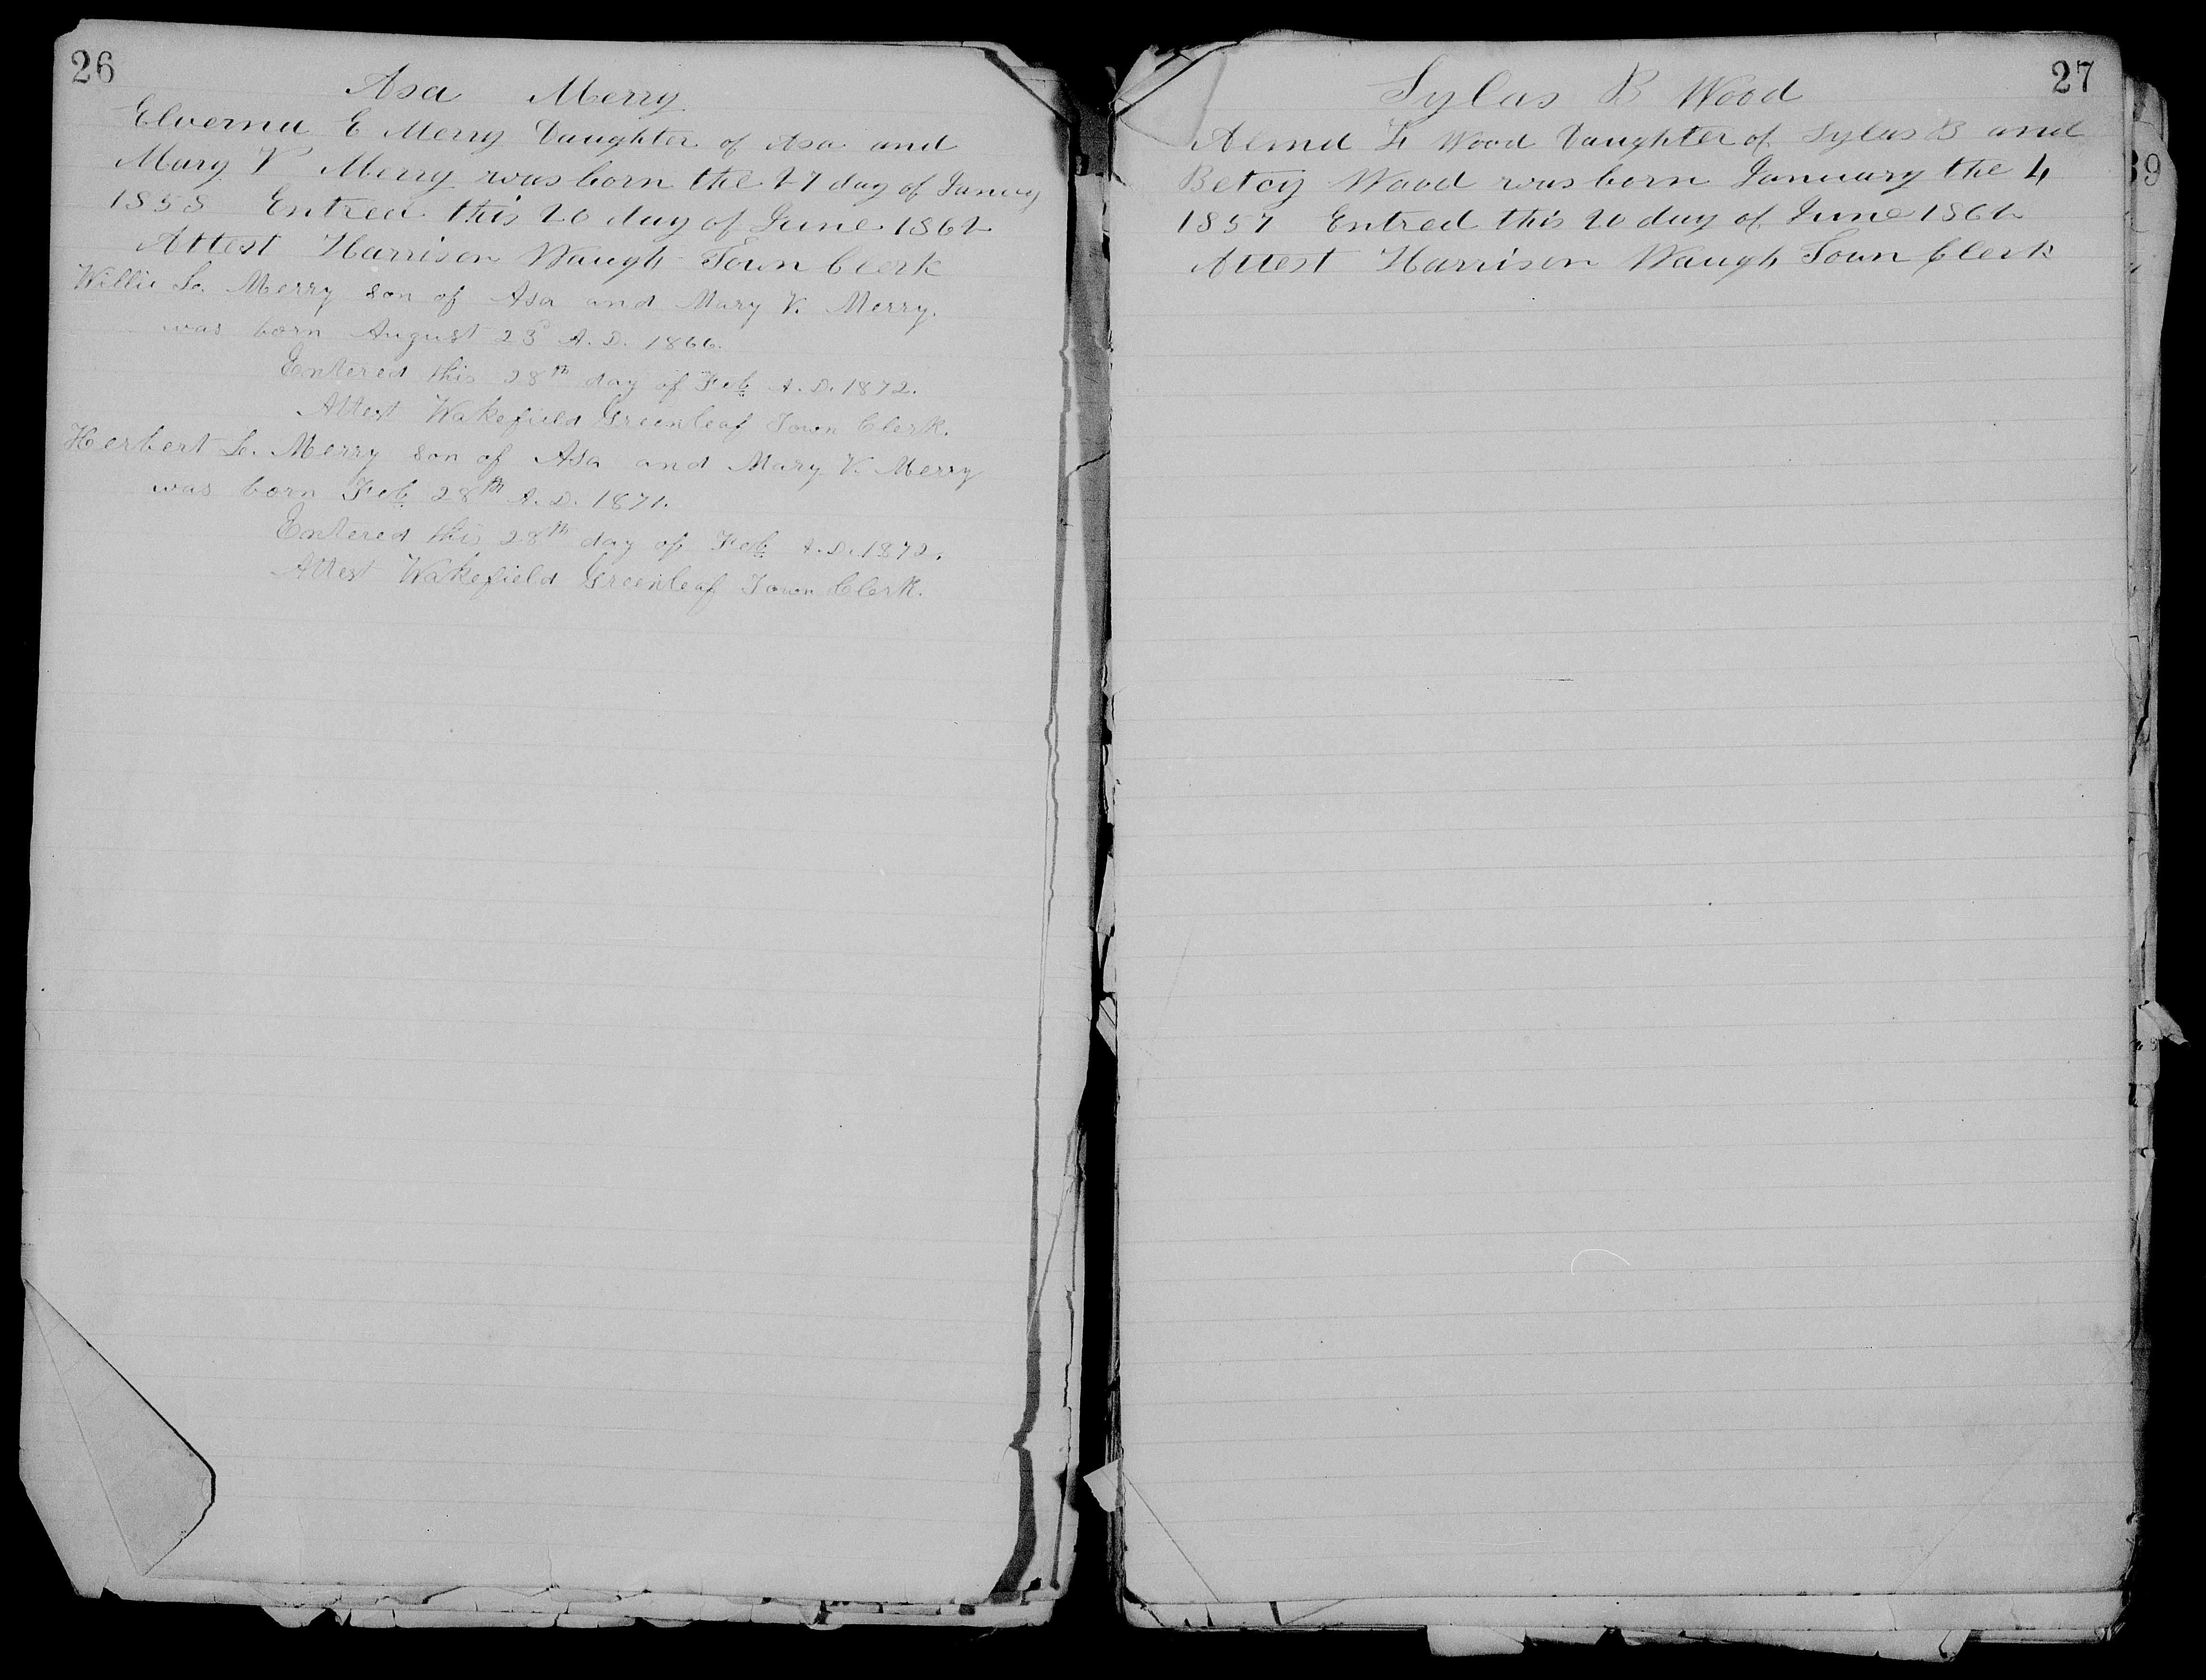 26
Asa Merry
Elverna E Merry Daughter of Asa and
Mary V Merry was born the 27 day of
1858 Entred this 20 day of June 1862
Attest Harrison Waugh Town Clerk
Willie L. Merry son of Asa and Mary V. Merry.
was born August 23d A.D. 1866.
Entered this 28th day of Feb A.D. 1872.
Attest Wakefield Greenleaf Town Clerk.
Herbert L. Merry son of Asa and Mary V. Merry
was born Feb 28th A.D. 1871.
Entered this 28th day of Feb A.D. 1872.
Attest Wakefield Greenleaf Town Clerk.
27
Sylas B Wood
Wood Daughter of Sylas B and
Betcy Wood was born January the 4
1857 Entred this 20 day of June 1862
Attest Harrison Waugh Town Clerk
39